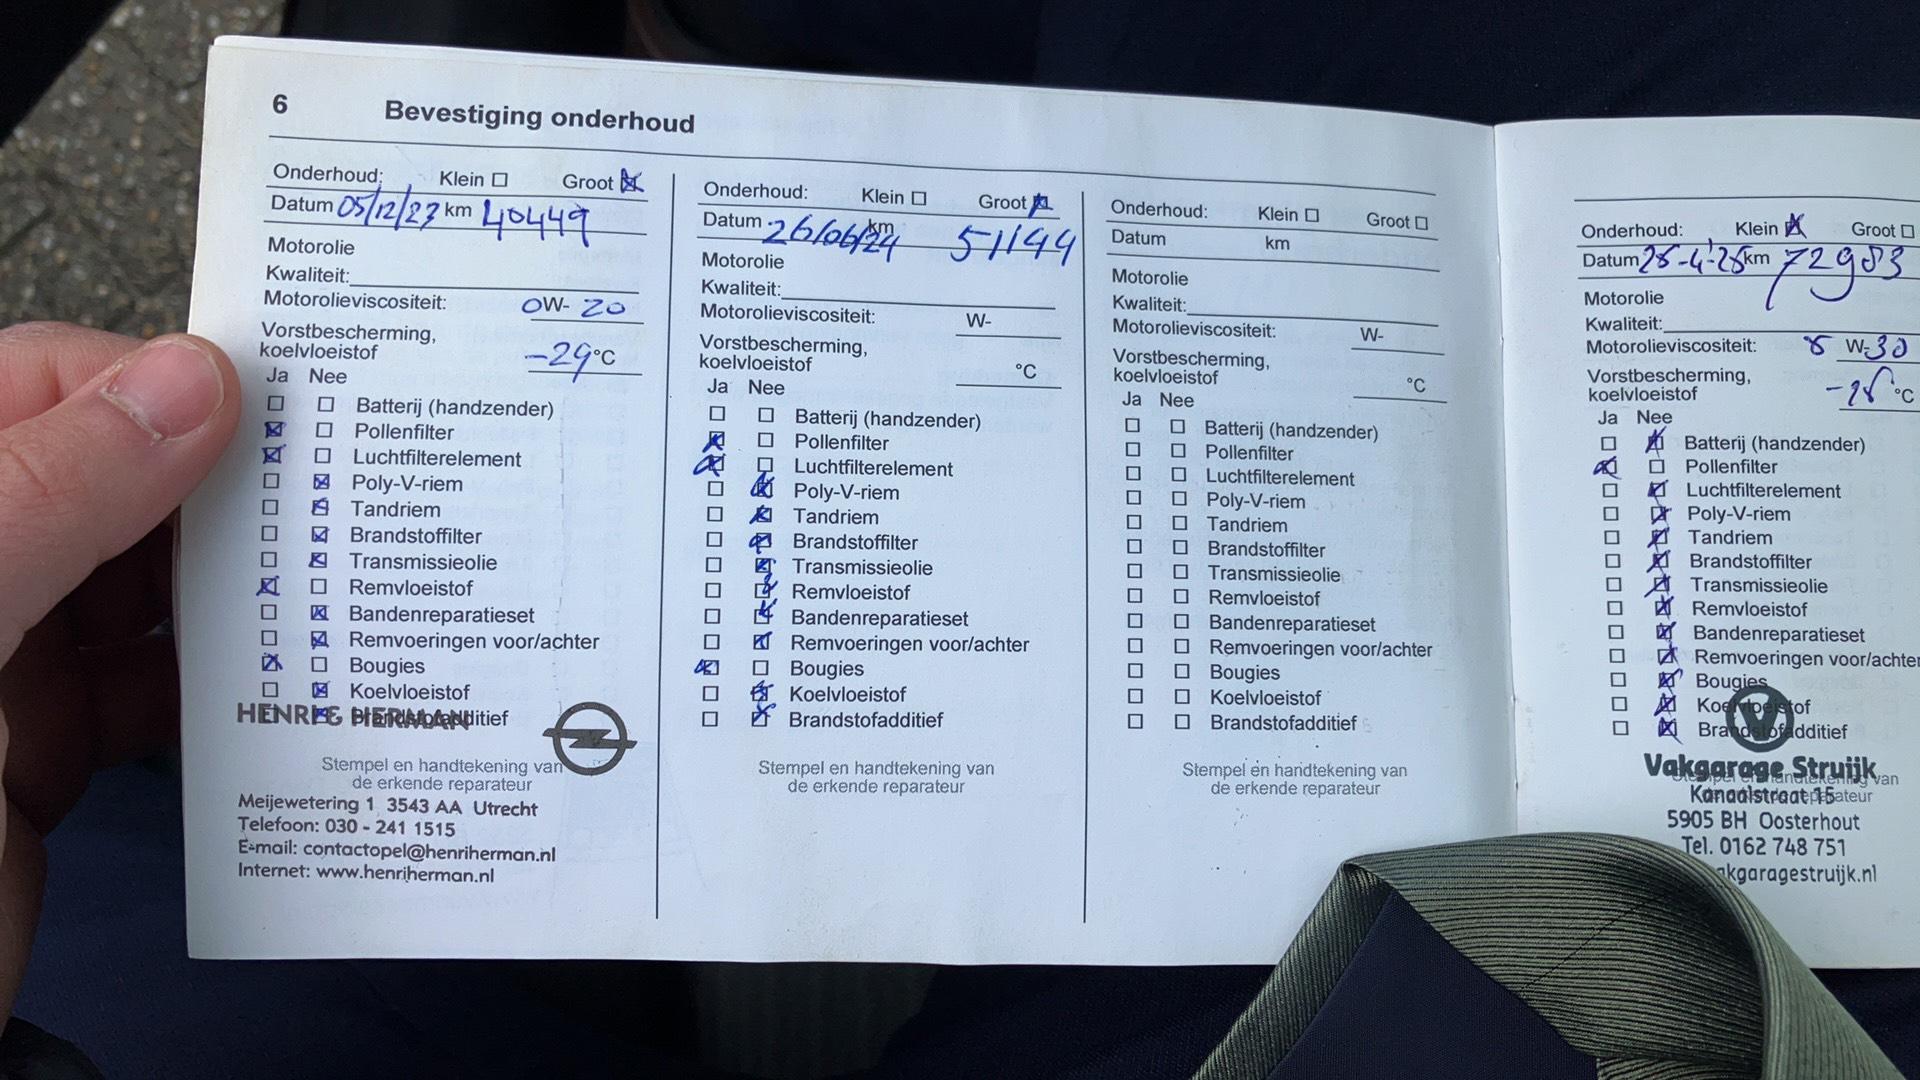 6 Bevestiging onderhoud
Onderhoud: Klein ☐ Groot ☒
Datum 05/12/23 km 40449
Motorolie
Kwaliteit:
Motorolieviscositeit: 0W-20
Vorstbescherming,
koelvloeistof -29°C
Ja Nee
☐ ☐ Batterij (handzender)
☒ ☐ Pollenfilter
☒ ☐ Luchtfilterelement
☐ ☒ Poly-V-riem
☐ ☒ Tandriem
☐ ☒ Brandstoffilter
☐ ☒ Transmissieolie
☒ ☐ Remvloeistof
☐ ☒ Bandenreparatieset
☐ ☒ Remvoeringen voor/achter
☒ ☐ Bougies
☐ ☒ Koelvloeistof
☐ ☒ Brandstofadditief
HENRI & HERMAN
Stempel en handtekening van
de erkende reparateur
Meijewetering 1 3543 AA Utrecht
Telefoon: 030 - 241 1515
E-mail: contactopel@henriherman.nl
Internet: www.henriherman.nl
Onderhoud: Klein ☐ Groot ☒
Datum 26/06/24 km 51144
Motorolie
Kwaliteit:
Motorolieviscositeit: W-
Vorstbescherming,
koelvloeistof °C
Ja Nee
☐ ☐ Batterij (handzender)
☒ ☐ Pollenfilter
☒ ☐ Luchtfilterelement
☐ ☒ Poly-V-riem
☐ ☒ Tandriem
☐ ☒ Brandstoffilter
☐ ☒ Transmissieolie
☐ ☒ Remvloeistof
☐ ☒ Bandenreparatieset
☐ ☒ Remvoeringen voor/achter
☒ ☐ Bougies
☐ ☒ Koelvloeistof
☐ ☒ Brandstofadditief
Stempel en handtekening van
de erkende reparateur
Onderhoud: Klein ☐ Groot ☐
Datum km
Motorolie
Kwaliteit:
Motorolieviscositeit: W-
Vorstbescherming,
koelvloeistof °C
Ja Nee
☐ ☐ Batterij (handzender)
☐ ☐ Pollenfilter
☐ ☐ Luchtfilterelement
☐ ☐ Poly-V-riem
☐ ☐ Tandriem
☐ ☐ Brandstoffilter
☐ ☐ Transmissieolie
☐ ☐ Remvloeistof
☐ ☐ Bandenreparatieset
☐ ☐ Remvoeringen voor/achter
☐ ☐ Bougies
☐ ☐ Koelvloeistof
☐ ☐ Brandstofadditief
Stempel en handtekening van
de erkende reparateur
Onderhoud: Klein ☒ Groot ☐
Datum km 72983
Motorolie
Kwaliteit:
Motorolieviscositeit: W-30
Vorstbescherming,
koelvloeistof °C
Ja Nee
☐ ☒ Batterij (handzender)
☒ ☐ Pollenfilter
☐ ☒ Luchtfilterelement
☐ ☒ Poly-V-riem
☐ ☒ Tandriem
☐ ☒ Brandstoffilter
☐ ☒ Transmissieolie
☐ ☒ Remvloeistof
☐ ☒ Bandenreparatieset
☐ ☒ Remvoeringen voor/achter
☐ ☒ Bougies
☐ ☒ Koelvloeistof
☐ ☒ Brandstofadditief
Vakgarage Struijk
Stempel en handtekening van
Kanaalstraat 15
reparateur
5905 BH Oosterhout
Tel. 0162 748 751
akgaragestruijk.nl